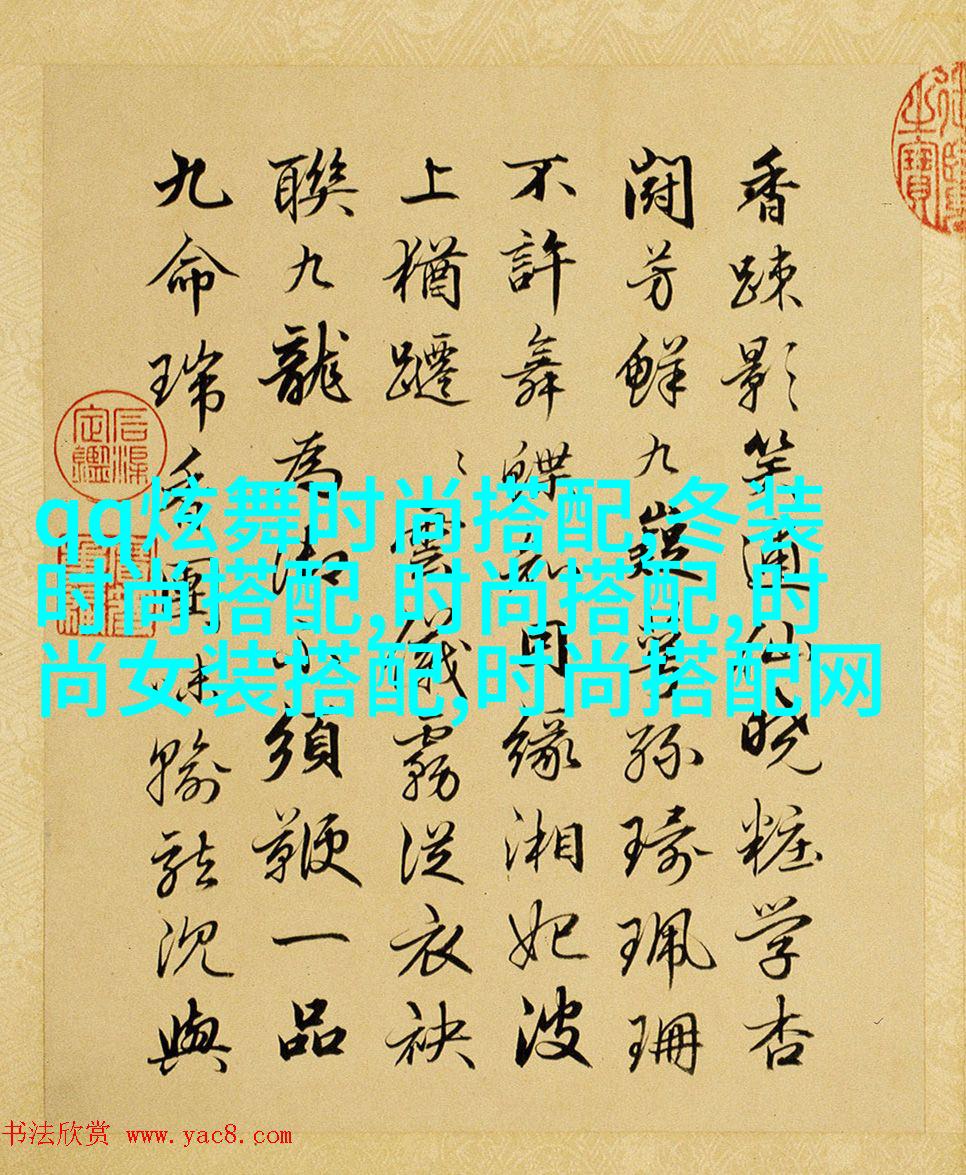 香疎影笑逋仙晓粧学杏
闘芳鮮九嶷孫琦珮珊
不許舞蝶缘湘妃波
上猶躚〻雲霧從衣袂
聯九龍為須鞭一品
九命瑞香味輸沉與
qq炫舞时尚搭配,冬装
时尚搭配,时尚搭配,时
尚女装搭配,时尚搭配网
书法欣赏 www.yac8.com